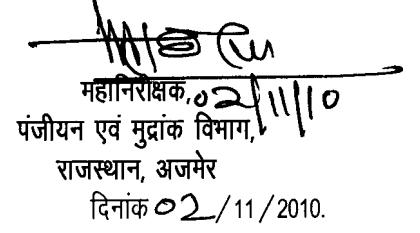 महानिरीक्षक, 02/11/10
पंजीयन एवं मुद्रांक विभाग,
राजस्थान, अजमेर
दिनांक 02/11/2010.